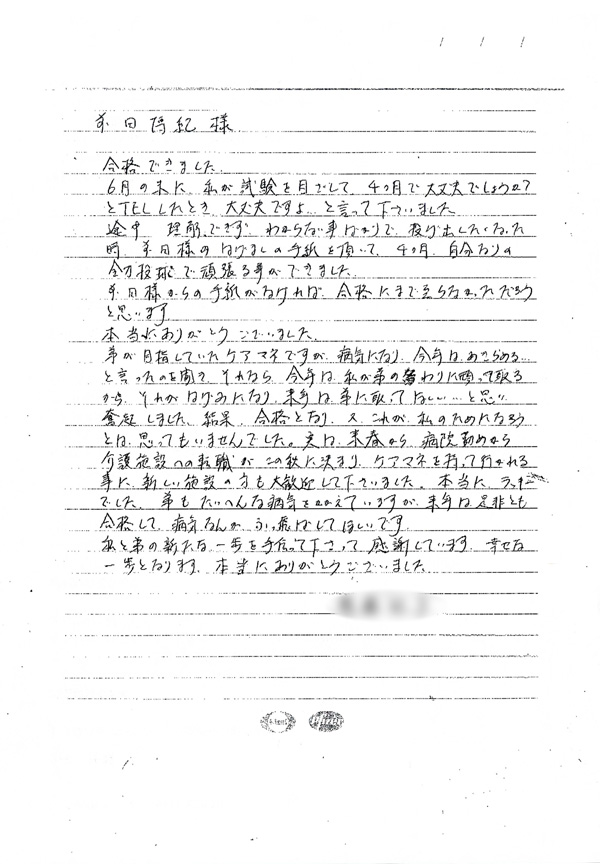 様
合格できました。
6月の末に 私が試験を目ざして、4ヶ月で大丈夫でしょうか?
とTELしたとき 大丈夫ですよ…と言って下さいました
途中 理解できず わからない事ばかりで、投げ出したくなった
時 本田様のはげましの手紙を頂いて、4ヶ月、自分なりの
全力投球で頑張る事ができました。
本田様からの手紙がなければ、合格にまで至らなかっただろう
と思います。
本当にありがとうございました。
弟が目指していたケアマネですが、病気になり、今年はあきらめる…
と言ったのを聞き、それなら、今年は、私が弟の替わりに頑って取る
から、それがはげみになり、来年は弟に取ってほしい…と思い
奮起しました。結果、合格となり、又、これが、私のためになろう
とは、思ってもいませんでした。実は、来春から、病院勤めから
介護施設への転職が この秋に決まり、ケアマネを持って行かれる
事に 新しい施設の方も大歓迎して下さいました。本当に、ラッキー
でした。弟も たいへんな病気をかかえていますが、来年は是非とも
合格して、病気なんか ふっ飛ばしてほしいです。
私と弟の新たな一歩を手伝って下さって 感謝しています。幸せな
一歩となります。本当にありがとうございました。